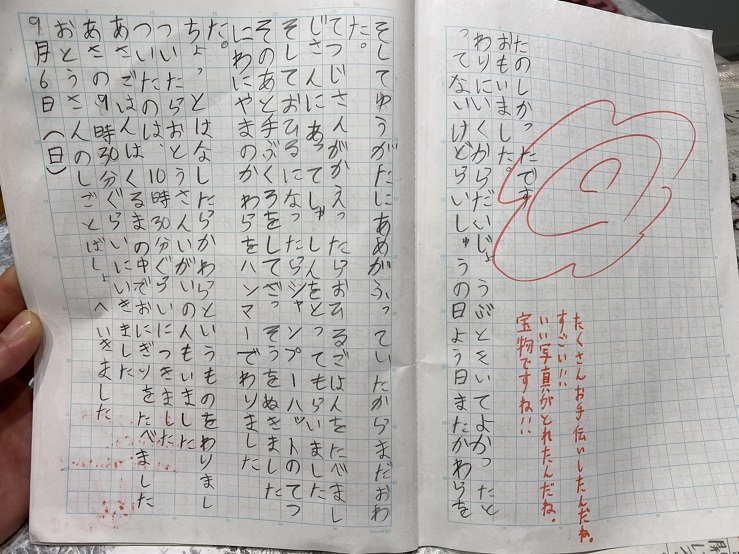 9月6日(日)
おとうさんのしごとばしょへいきました
あさの9時30分ぐらいにいきました
あさごはんはくるまの中でおにぎりをたべました
ついたのは、10時30分ぐらいにつきました
ついたらおとうさんいがいの人もいました
ちょっとはなしたらかわらというものをわりまし
た。
にわにやまのかわらをハンマーでわりました
そのあと手ぶくろをしてざっそうをぬきました
そしておひるになったらシャンプーハットのてつ
じさんにあってしゃしんをとってもらいました
てつじさんがかえったらおひるごはんをたべまし
た。
そしてゆうがたにあめがふっていたからまだおわ
ってないけどらいしゅうの日よう日またかわらを
わりにいくからだいじょうぶときいてよかったと
おもいました。
たのしかったです
たくさんお手伝いしたんだね。
すごい!!
いい写真がとれたんだね。
宝物ですね!!